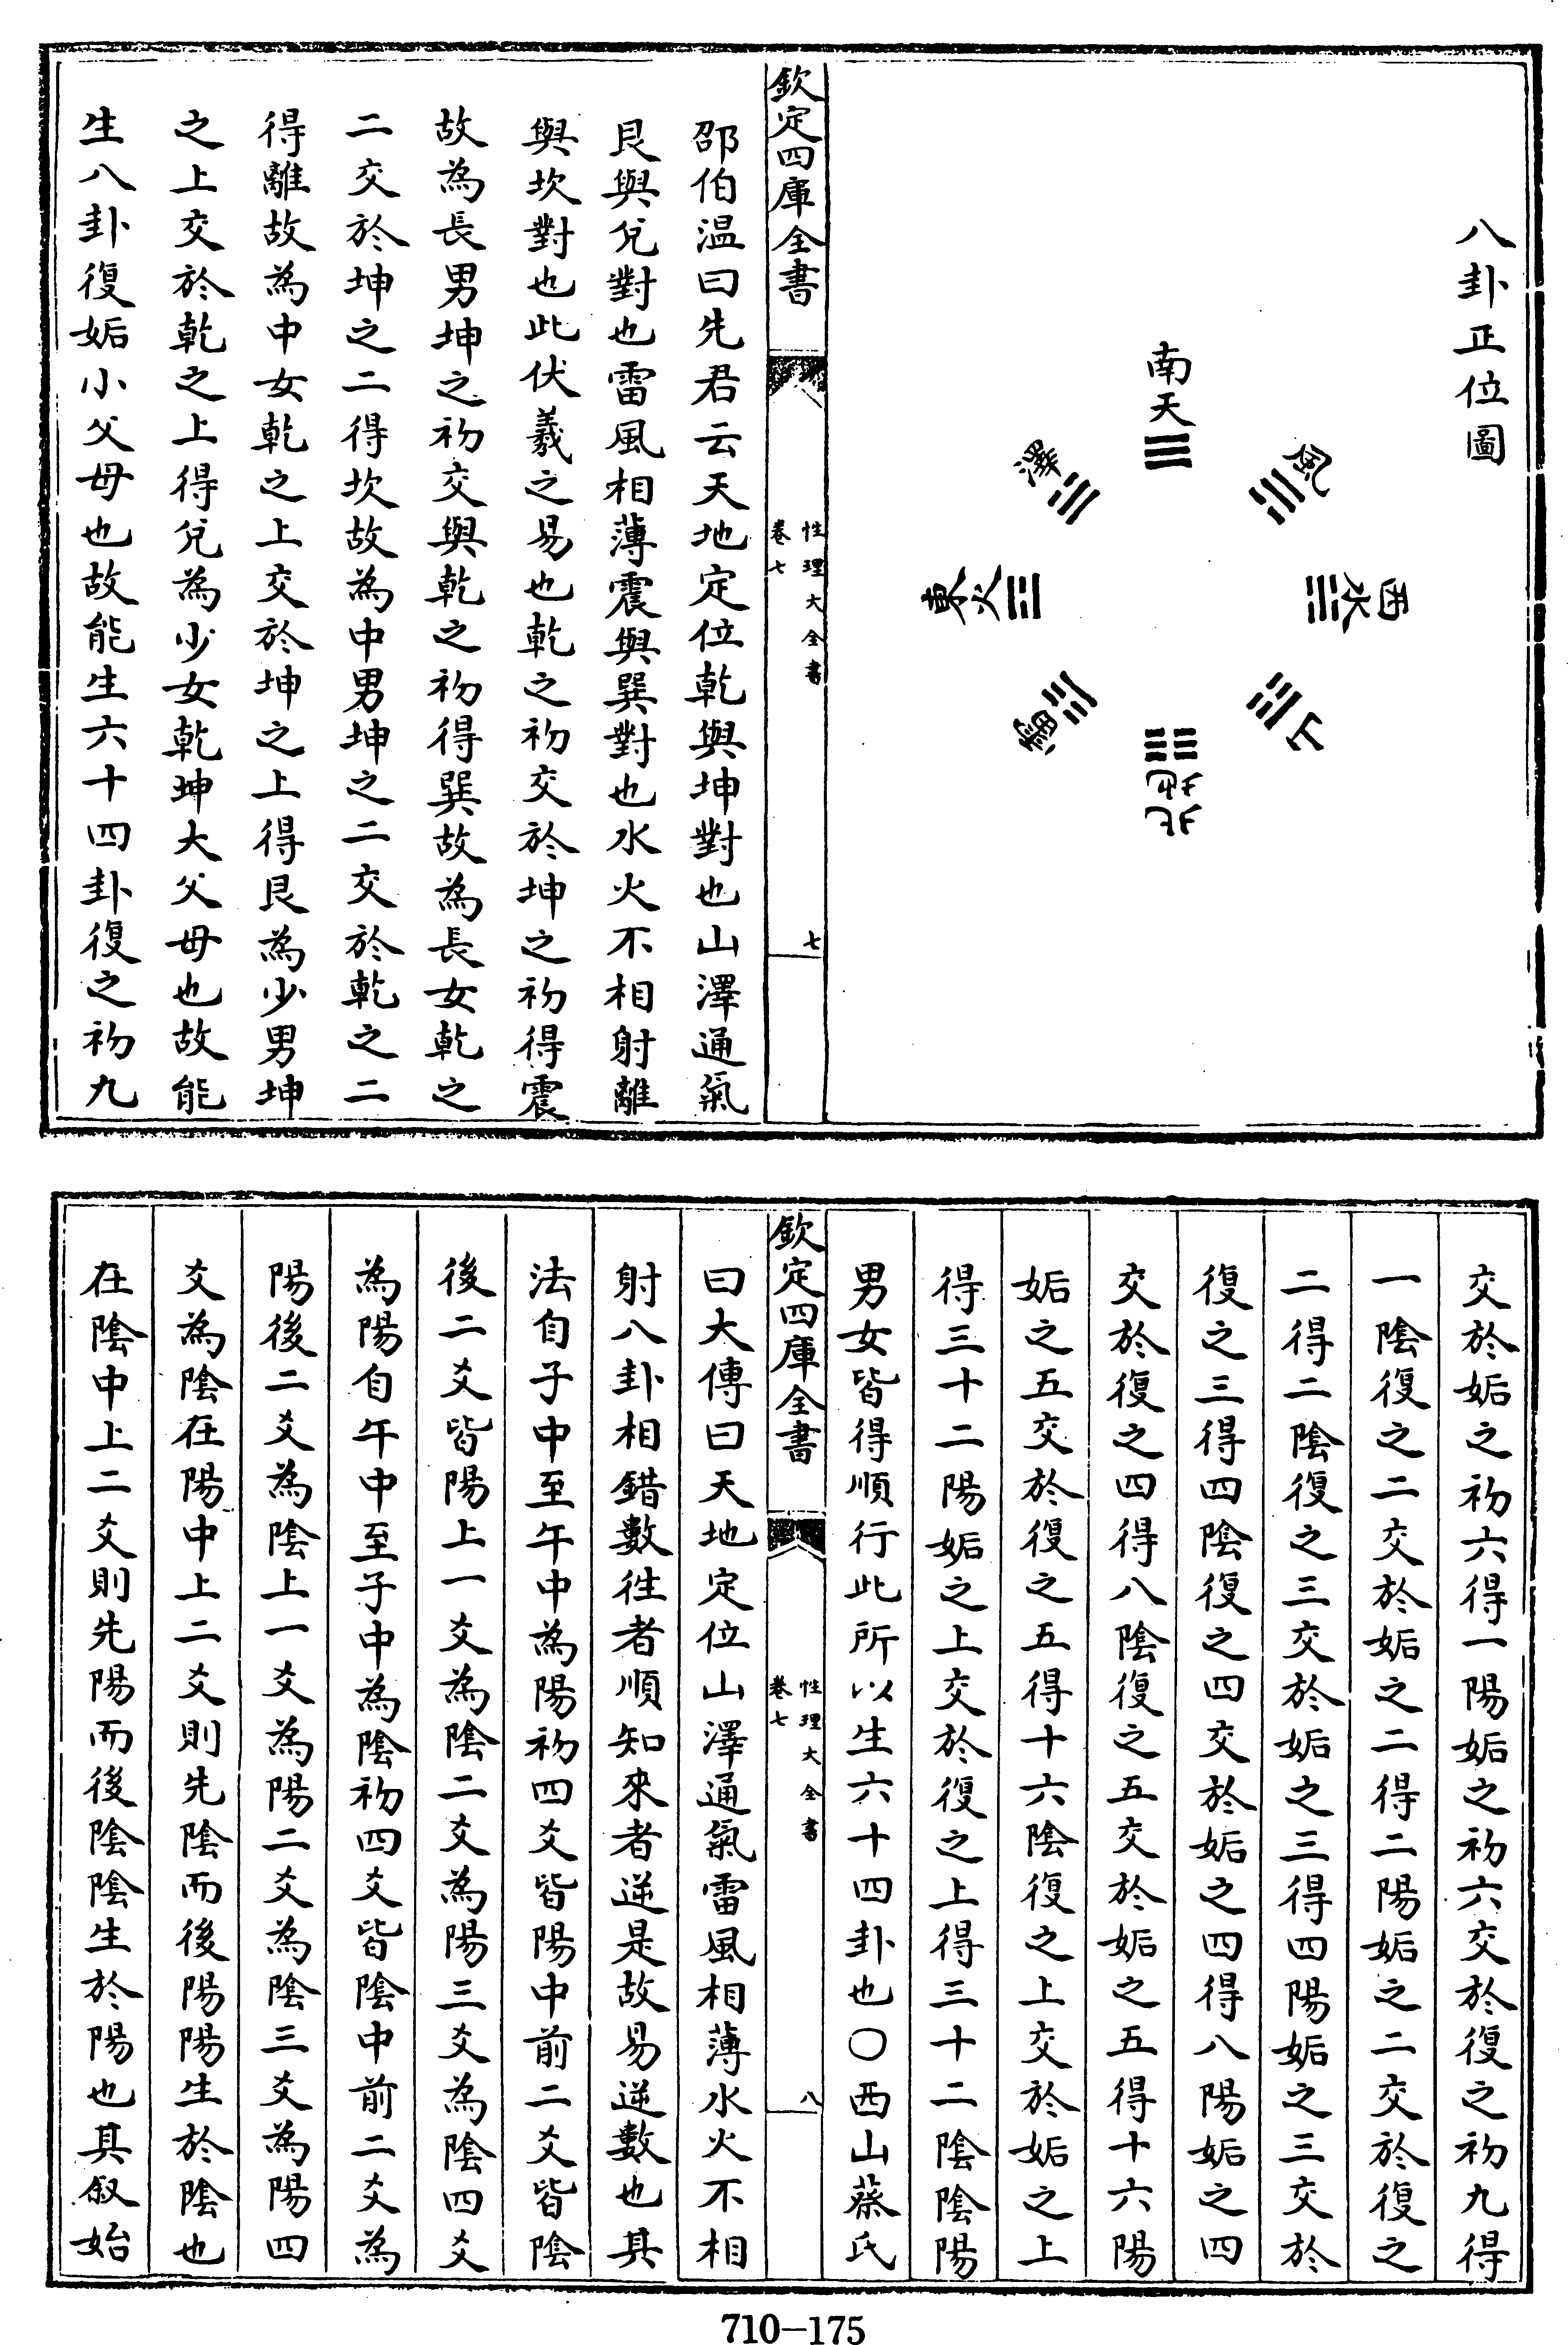 八卦正位圖
南天
風
西水
山
北地
雷
東火
澤
欽定四庫全書
性理大全書
卷七
七
邵伯温曰先君云天地定位乾與坤對也山澤通氣
艮與兌對也雷風相薄震與巽對也水火不相射離
與坎對也此伏羲之易也乾之初交於坤之初得震
故為長男坤之初交與乾之初得巽故為長女乾之
二交於坤之二得坎故為中男坤之二交於乾之二
得離故為中女乾之上交於坤之上得艮為少男坤
之上交於乾之上得兌為少女乾坤大父母也故能
生八卦復姤小父母也故能生六十四卦復之初九
交於姤之初六得一陽姤之初六交於復之初九得
一陰復之二交於姤之二得二陽姤之二交於復之
二得二陰復之三交於姤之三得四陽姤之三交於
復之三得四陰復之四交於姤之四得八陽姤之四
交於復之四得八陰復之五交於姤之五得十六陽
姤之五交於復之五得十六陰復之上交於姤之上
得三十二陽姤之上交於復之上得三十二陰陰陽
男女皆得順行此所以生六十四卦也○西山蔡氏
欽定四庫全書
性理大全書
卷七
八
曰大傳曰天地定位山澤通氣雷風相薄水火不相
射八卦相錯數徃者順知來者逆是故易逆數也其
法自子中至午中為陽初四爻皆陽中前二爻皆陰
後二爻皆陽上一爻為陰二爻為陽三爻為陰四爻
為陽自午中至子中為陰初四爻皆陰中前二爻為
陽後二爻為陰上一爻為陽二爻為陰三爻為陽四
爻為陰在陽中上二爻則先陰而後陽陽生於陰也
在陰中上二爻則先陽而後陰陰生於陽也其叙始
710-175